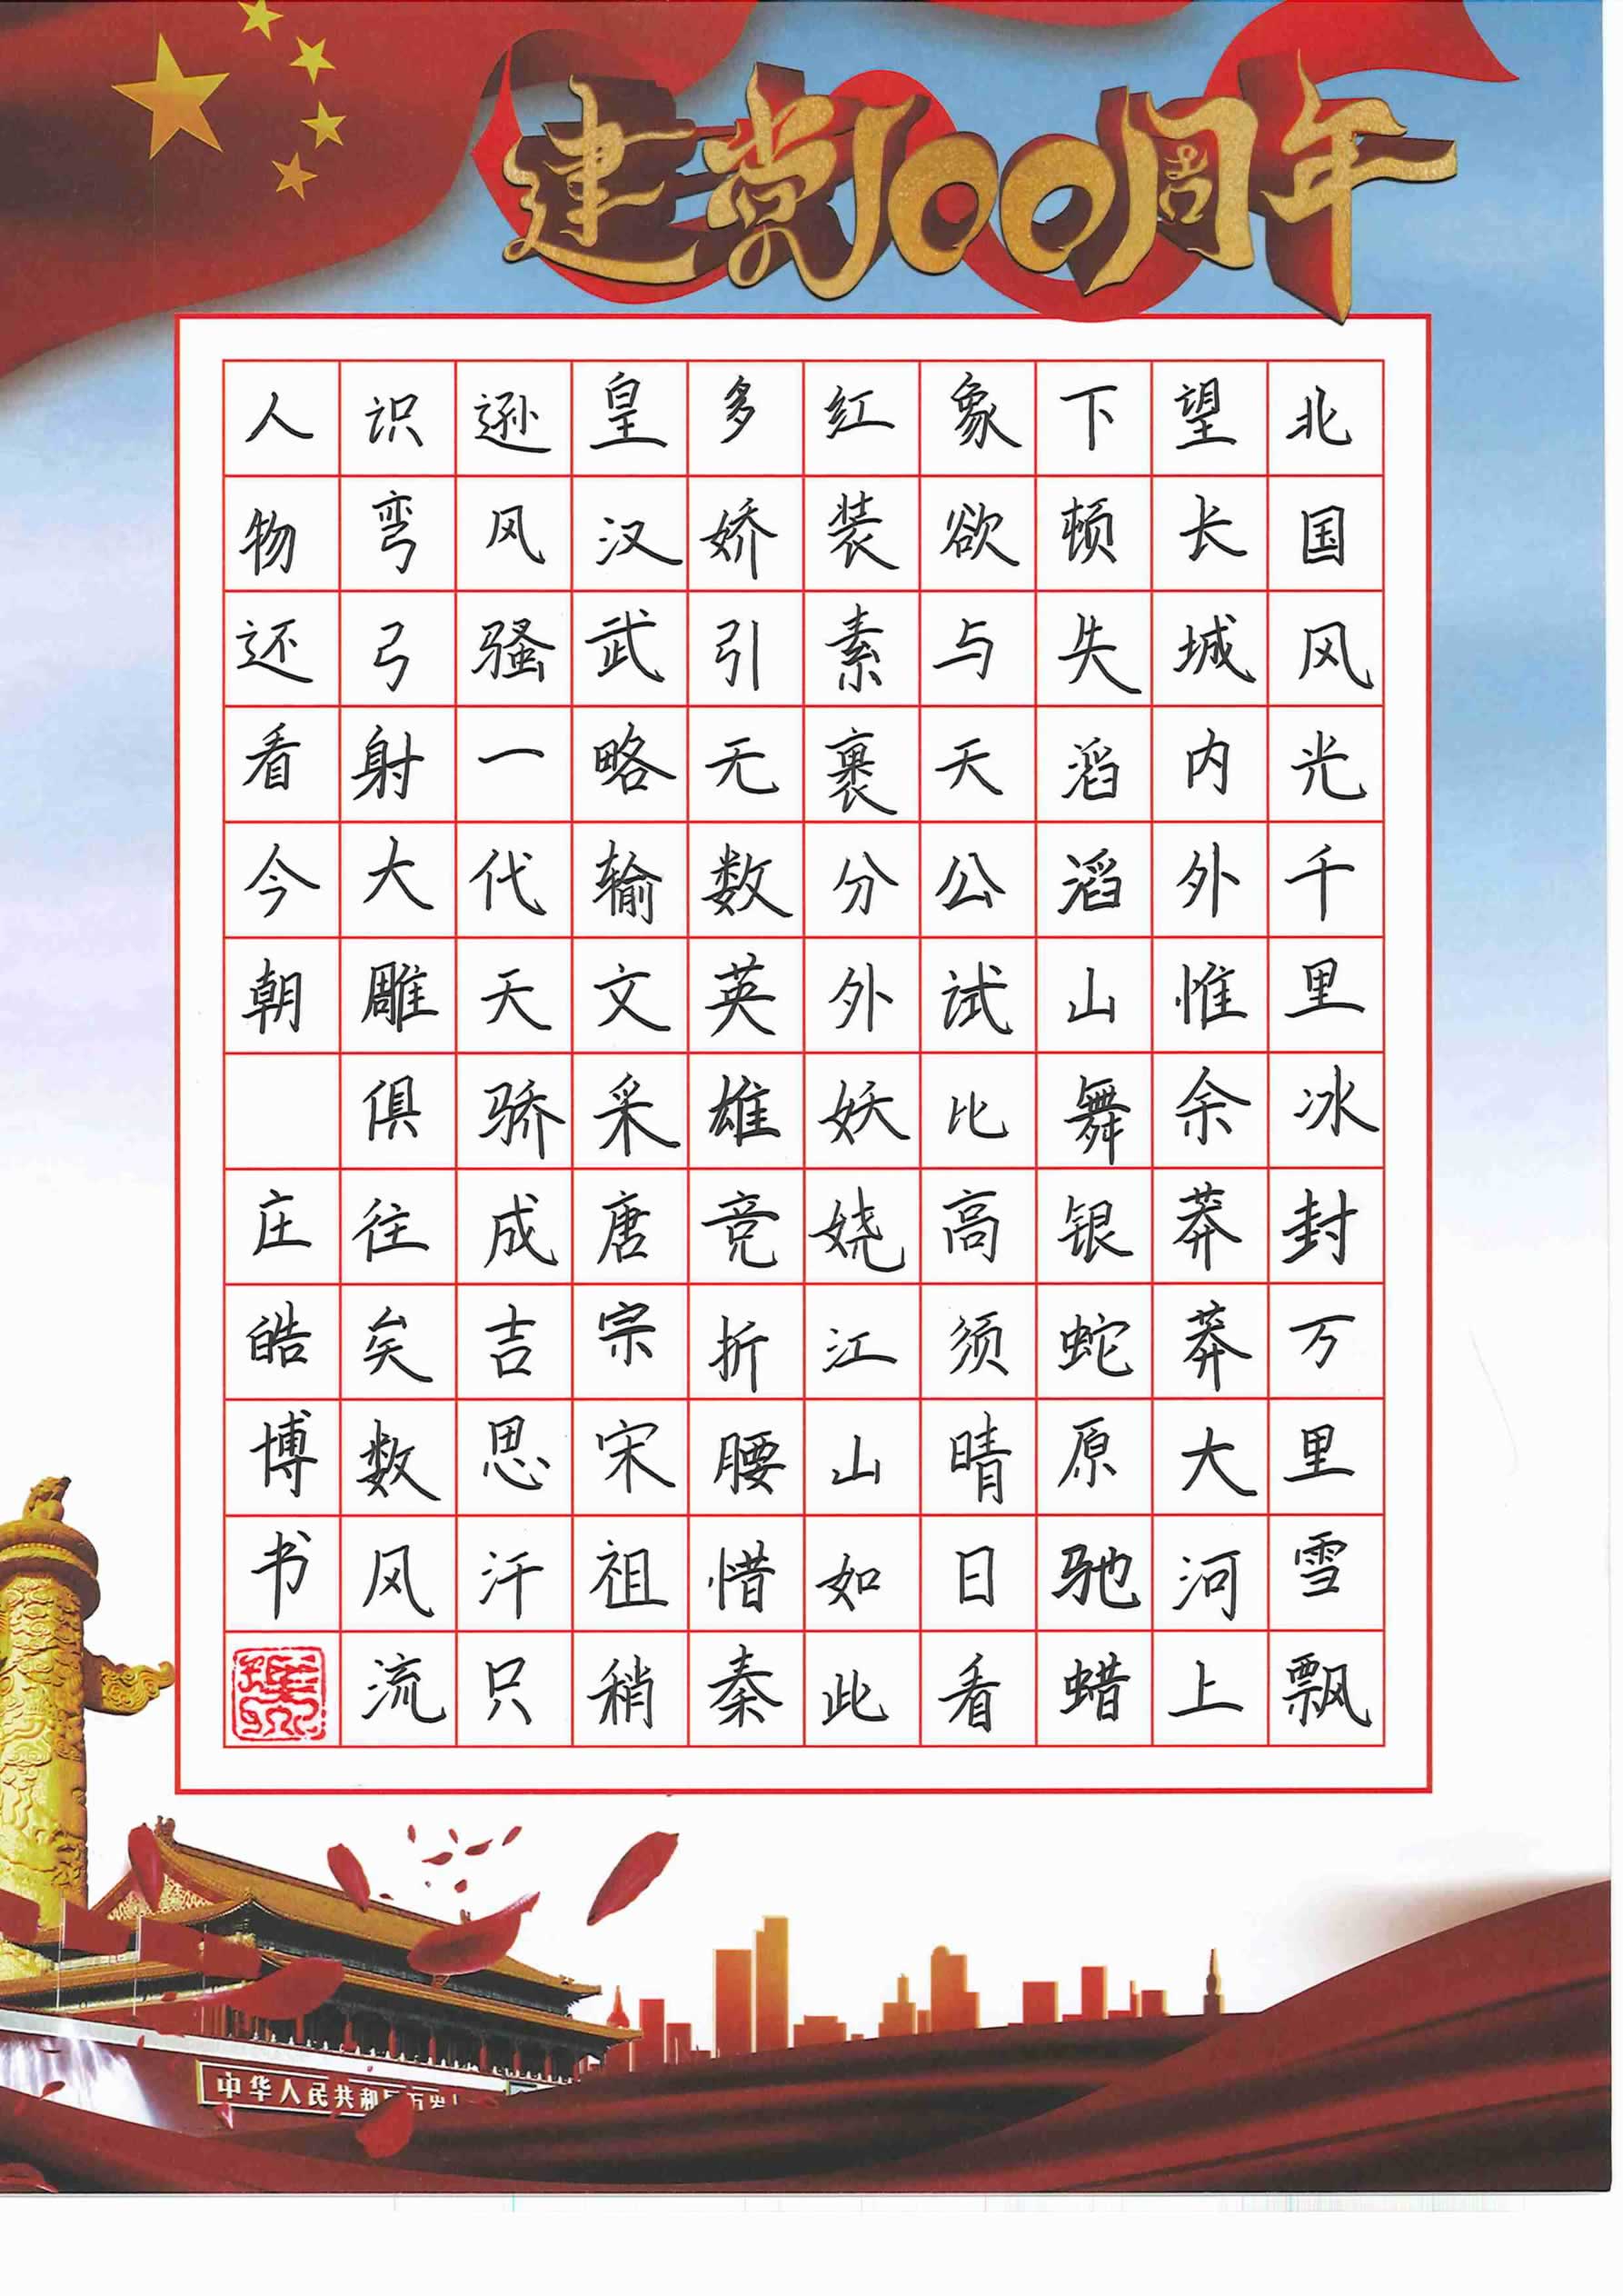 建党100周年
北国风光千里冰封万里雪飘
望长城内外惟余莽莽大河上
下顿失滔滔山舞银蛇原驰蜡
象欲与天公试比高须晴日看
红装素裹分外妖娆江山如此
多娇引无数英雄竞折腰惜秦
皇汉武略输文采唐宗宋祖稍
逊风骚一代天骄成吉思汗只
识弯弓射大雕俱往矣数风流
人物还看今朝 庄皓博书
中华人民共和国万岁